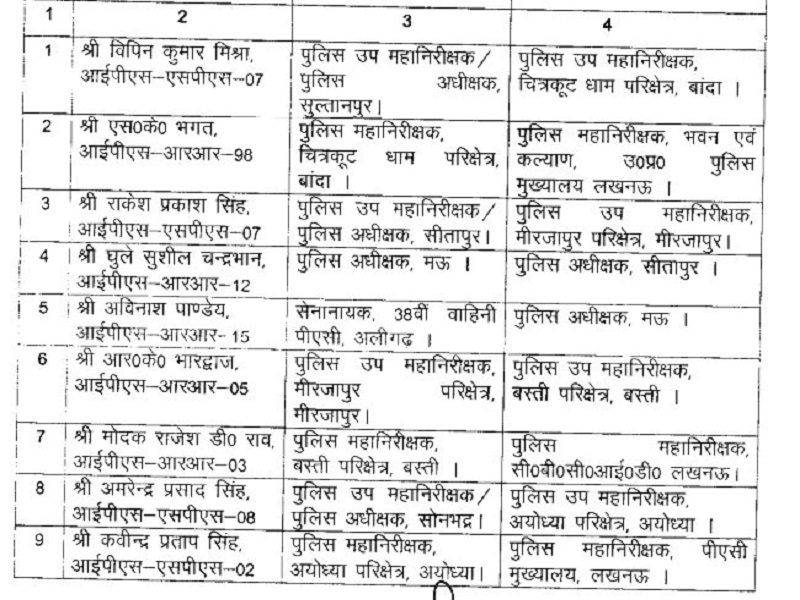 1 2 3 4
1 श्री विपिन कुमार मिश्रा, पुलिस उप महानिरीक्षक/ पुलिस उप महानिरीक्षक,
आईपीएस–एसपीएस–07 पुलिस अधीक्षक, चित्रकूट धाम परिक्षेत्र, बांदा ।
सुल्तानपुर।
2 श्री एस0के0 भगत, पुलिस महानिरीक्षक, पुलिस महानिरीक्षक, भवन एवं
आईपीएस–आरआर–98 चित्रकूट धाम परिक्षेत्र, कल्याण, उ0प्र0 पुलिस
बांदा । मुख्यालय लखनऊ ।
3 श्री राकेश प्रकाश सिंह, पुलिस उप महानिरीक्षक/ पुलिस उप महानिरीक्षक,
आईपीएस–एसपीएस–07 पुलिस अधीक्षक, सीतापुर। मीरजापुर परिक्षेत्र, मीरजापुर।
4 श्री घुले सुशील चन्द्रभान, पुलिस अधीक्षक, मऊ । पुलिस अधीक्षक, सीतापुर ।
आईपीएस–आरआर–12
5 श्री अविनाश पाण्डेय, सेनानायक, 38वीं वाहिनी पुलिस अधीक्षक, मऊ ।
आईपीएस–आरआर-15 पीएसी, अलीगढ़ ।
6 श्री आर0के0 भारद्वाज, पुलिस उप महानिरीक्षक, पुलिस उप महानिरीक्षक,
आईपीएस–आरआर–05 मीरजापुर परिक्षेत्र, बस्ती परिक्षेत्र, बस्ती ।
मीरजापुर।
7 श्री मोदक राजेश डी0 राव, पुलिस महानिरीक्षक, पुलिस महानिरीक्षक,
आईपीएस–आरआर–03 बस्ती परिक्षेत्र, बस्ती । सी0बी0सी0आई0डी0 लखनऊ।
8 श्री अमरेन्द्र प्रसाद सिंह, पुलिस उप महानिरीक्षक/ पुलिस उप महानिरीक्षक,
आईपीएस–एसपीएस–08 पुलिस अधीक्षक, सोनभद्र। अयोध्या परिक्षेत्र, अयोध्या ।
9 श्री कवीन्द्र प्रताप सिंह, पुलिस महानिरीक्षक, पुलिस महानिरीक्षक, पीएसी
आईपीएस–एसपीएस–02 अयोध्या परिक्षेत्र, अयोध्या। मुख्यालय, लखनऊ ।